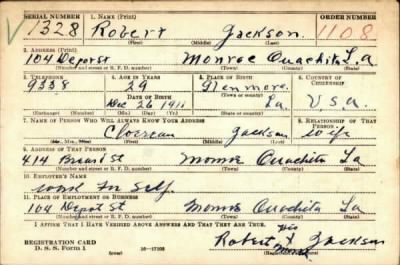 SERIAL NUMBER 1. NAME (Print) ORDER NUMBER
1328 Robert Jackson 1108
(First) (Middle) (Last)
2. ADDRESS (Print)
104 Depot St Monroe Ouachita La
(Number and street or R. F. D. number) (Town) (County) (State)
3. TELEPHONE 4. AGE IN YEARS 5. PLACE OF BIRTH 6. COUNTRY OF CITIZENSHIP
9338 29 Glenmora
DATE OF BIRTH (Town or county)
Dec 26 1911 La. U.S.a.
(Exchange) (Number) (Mo.) (Day) (Yr.) (State or country)
7. NAME OF PERSON WHO WILL ALWAYS KNOW YOUR ADDRESS RELATIONSHIP OF THAT PERSON
Jackson wife
(Mr., Mrs., Miss) (First) (Middle) (Last)
9. ADDRESS OF THAT PERSON
414 St Monroe Ouachita La
(Number and street or R. F. D. number) (Town) (County) (State)
10. EMPLOYER'S NAME
work for Self.
11. PLACE OF EMPLOYMENT OR BUSINESS
104 Depot St Monroe Ouachita La
(Number and street or R. F. D. number) (Town) (County) (State)
I AFFIRM THAT I HAVE VERIFIED ABOVE ANSWERS AND THAT THEY ARE TRUE.
his
Robert X Jackson
mark
REGISTRATION CARD
D. S. S. Form 1 (over) 16—17105